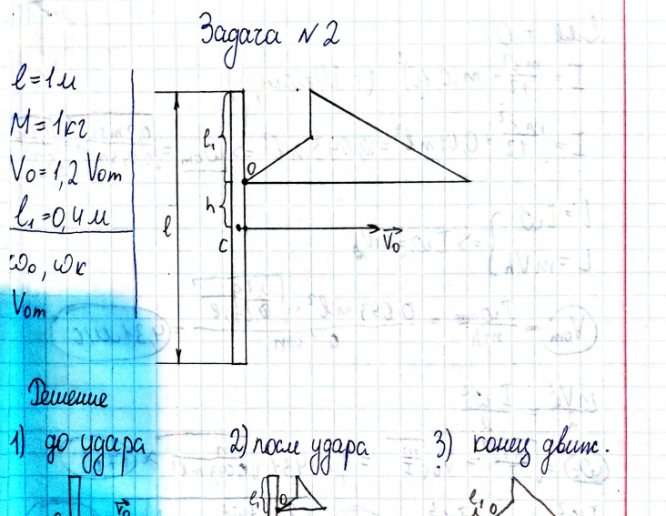 Задача №2
l=1м
M=1кг
V₀=1,2 Vот
l₁=0,4м
ω₀, ωк
Vот
l
l₁
h
O
C
V₀
Решение
1) до удара
2) после удара
3) конец движ.
O
V₀
l₁
O
l₁
O